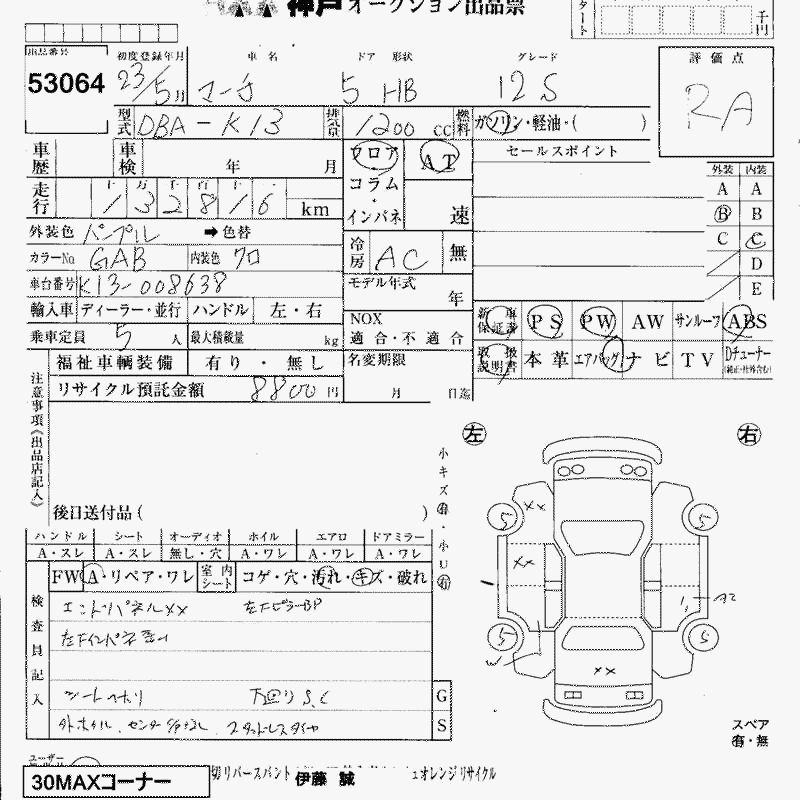 神戸オークション出品票
千円
出品番号 53064
初度登録年月 車名 ドア 形状 グレード 評価点
23/5月 マーチ 5 HB 12S RA
型式 DBA-K13 排気量 1200 cc 燃料 ガソリン・軽油・( )
車歴 車検 年 月 フロア AT セールスポイント
走行 132816 km コラム・インパネ 速
外装 内装
A A
B B
C C
D
E
外装色 パープル ➡色替
カラーNo GAB 内装色 クロ 冷房 AC 無
車台番号 K13-008638 モデル年式 年
輸入車 ディーラー・並行 ハンドル 左・右 NOX 適合・不適合
新車保証書 PS PW AW サンルーフ ABS
乗車定員 5 人 最大積載量 kg
取扱説明書 本革 エアバッグ ナビ TV Dチューナー (純正・社外含む)
福祉車輌装備 有り・無し 名変期限 月 日迄
リサイクル預託金額 8800 円
注意事項(出品店記入)
後日送付品( )
小キズ有・小U有
左 右
ハンドル シート オーディオ ホイル エアロ ドアミラー
A・スレ A・スレ 無し・穴 A・ワレ A・ワレ A・ワレ
FW A・リペア・ワレ 室内シート コゲ・穴・汚れ・キズ・破れ
検査員記入
エンドパネルXX 左Fピラー
シートヘタリ 下廻りS,C
外ホイル、センターキャップ スタッドレスタイヤ
G
S
XX
XX
XX
5 5
5 5
W
スペア
有・無
ユーザー
30MAXコーナー
リバース
伊藤 誠
オレンジリサイクル